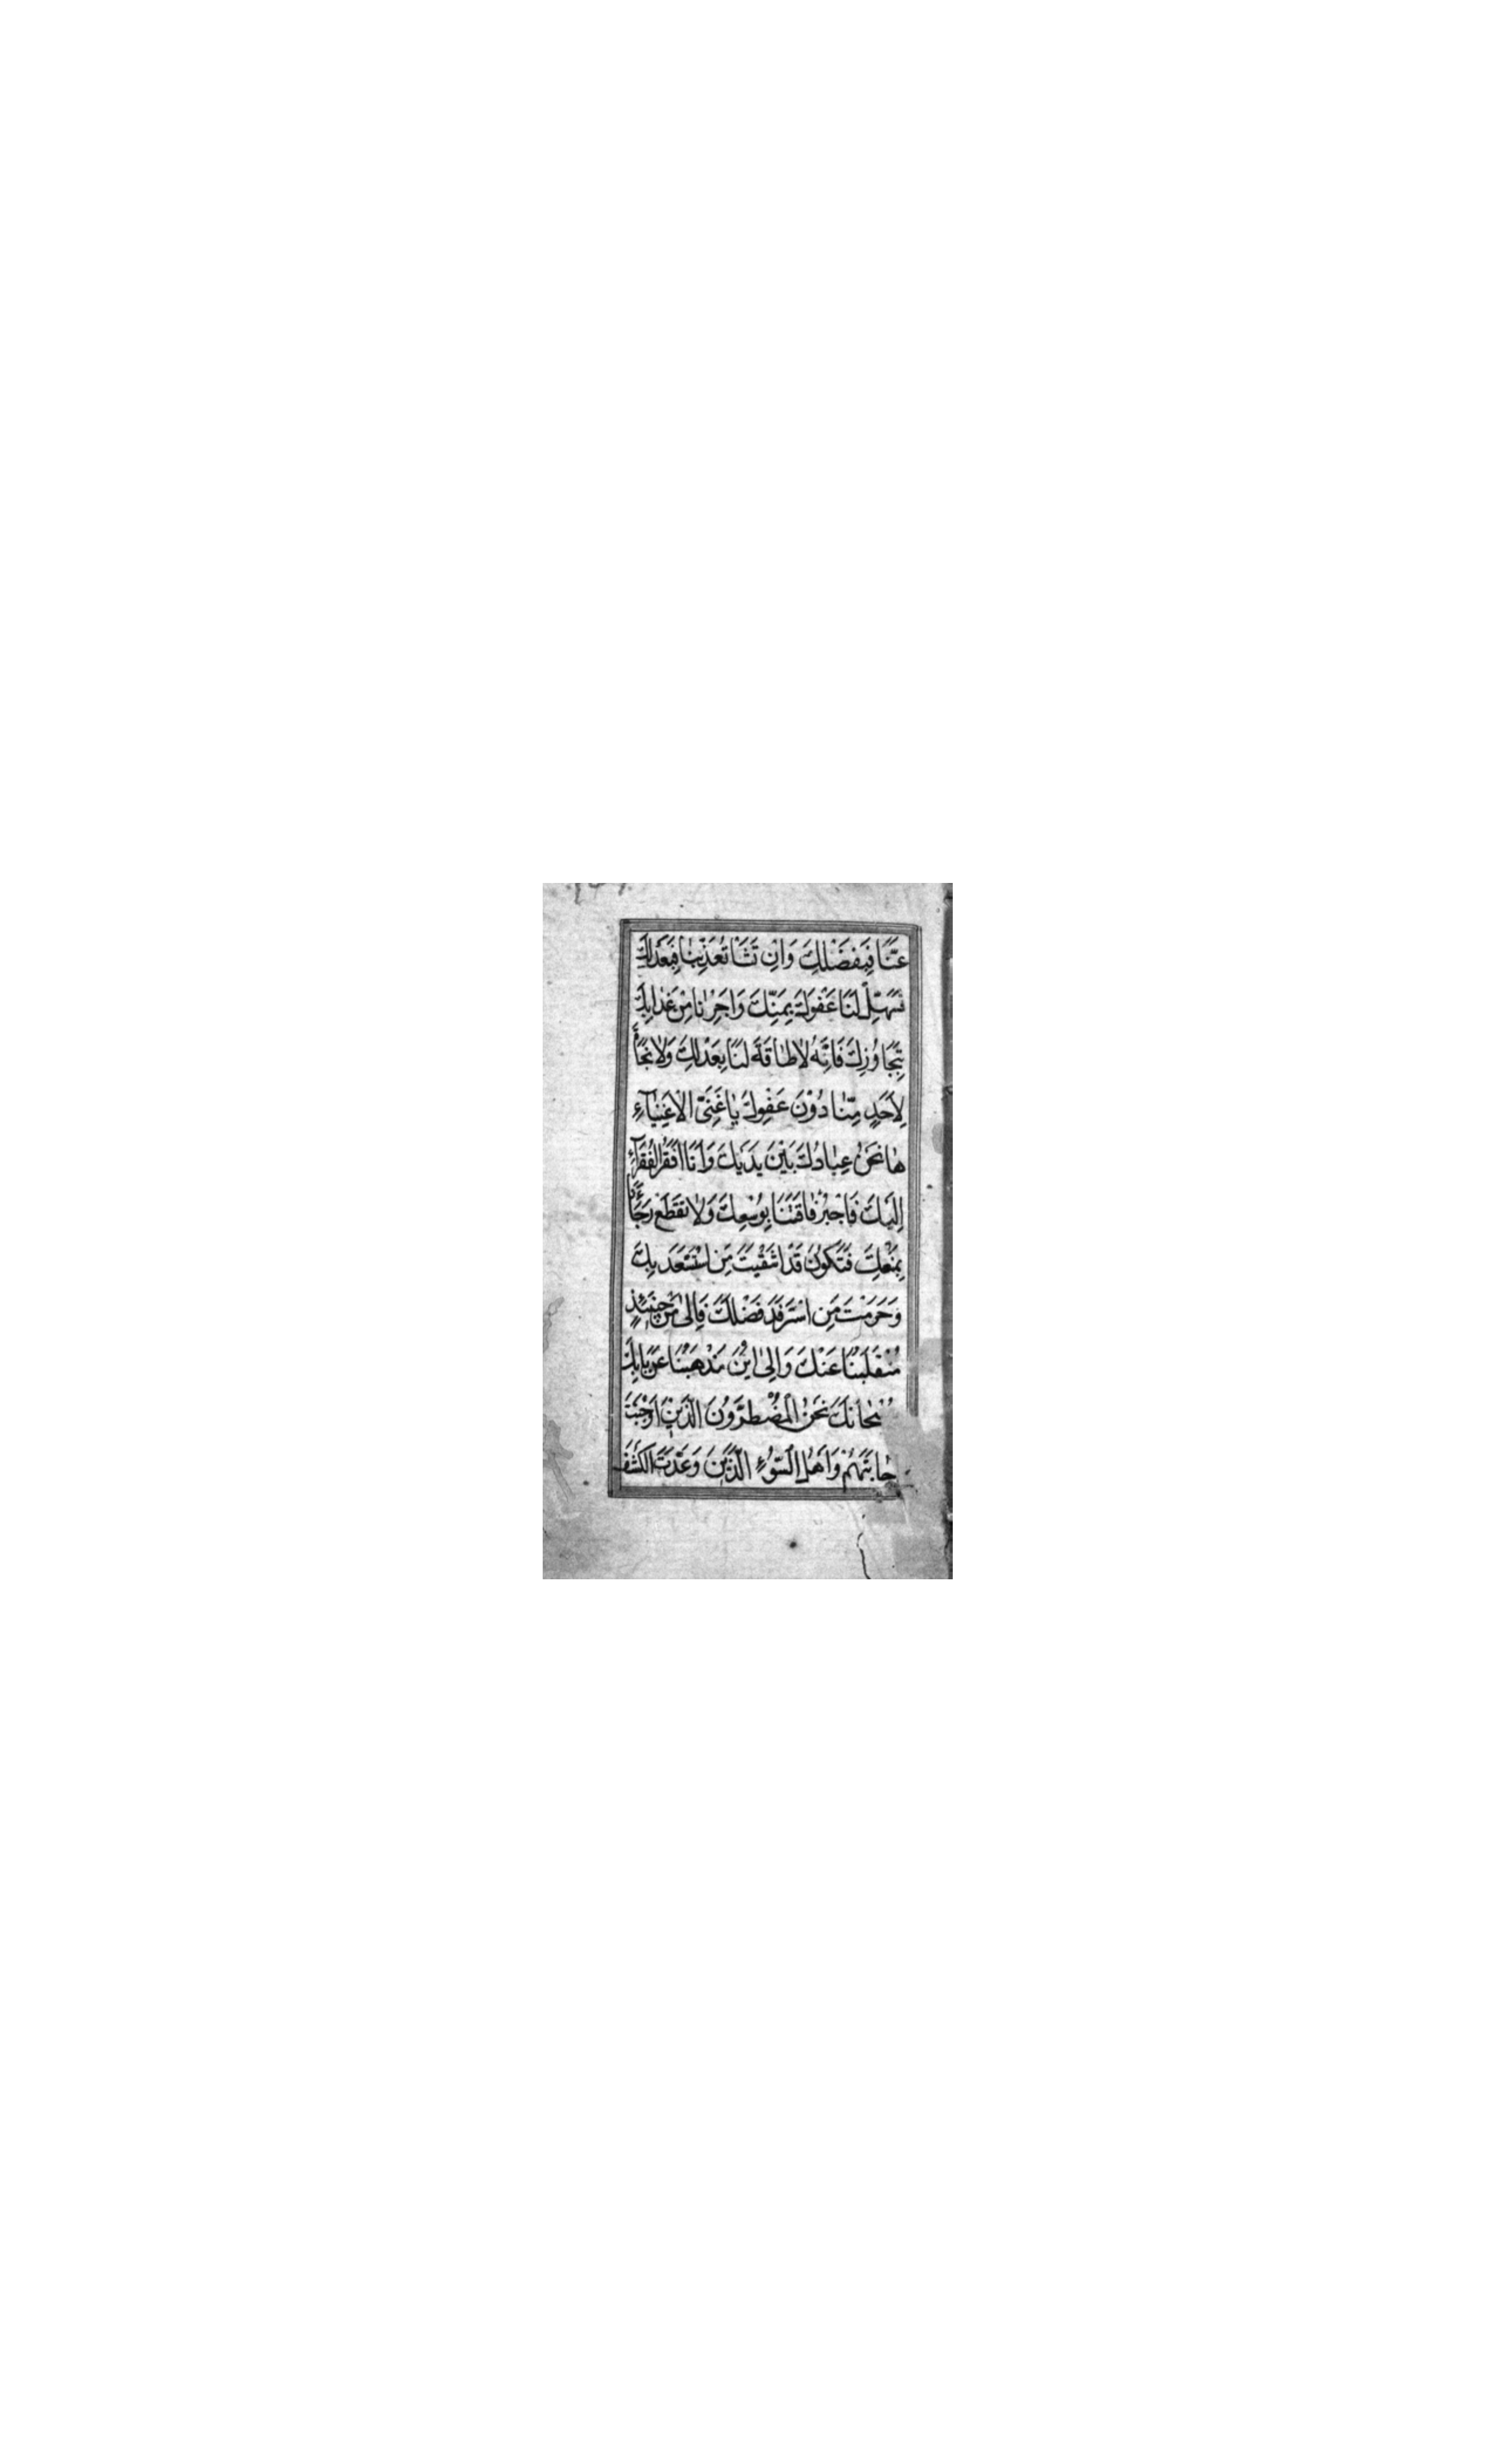 عَنَّا فَبِفَضْلِكَ وَاِنْ تَشَا تُعَذِّبْنَا فَبِعَدْلِكَ
فَسَهِّلْ لَنَا عَفْوَكَ بِمَنِّكَ وَاَجِرْنَا مِنْ عَذَابِكَ
بِتَجَاوُزِكَ فَاِنَّهُ لَا طَاقَةَ لَنَا بِعَدْلِكَ وَلَا نَجَاةَ
لِاَحَدٍ مِنَّا دُوْنَ عَفْوِكَ يَا غَنِيَّ الْاَغْنِيَآءِ
هَا نَحْنُ عِبَادُكَ بَيْنَ يَدَيْكَ وَاَنَا اَفْقَرُ الْفُقَرَآءِ
اِلَيْكَ فَاجْبُرْ فَاقَتَنَا بِوُسْعِكَ وَلَا تَقْطَعْ رَجَآءَنَا
بِمَنْعِكَ فَتَكُوْنُ قَدْ اَشْقَيْتَ مَنِ اسْتَسْعَدَ بِكَ
وَحَرَمْتَ مَنِ اسْتَرْفَدَ فَضْلَكَ فَاِلٰى مَنْ حِيْنَئِذٍ
مُنْقَلَبُنَا عَنْكَ وَاِلٰى اَيْنَ مَذْهَبُنَا عَنْ بَابِكَ
سُبْحَانَكَ نَحْنُ الْمُضْطَرُّوْنَ الَّذِيْنَ اَوْجَبْتَ
جَابَتَهُمْ وَاَهْلُ السُّوْءِ الَّذِيْنَ وَعَدْتَ الْكَشْفَ